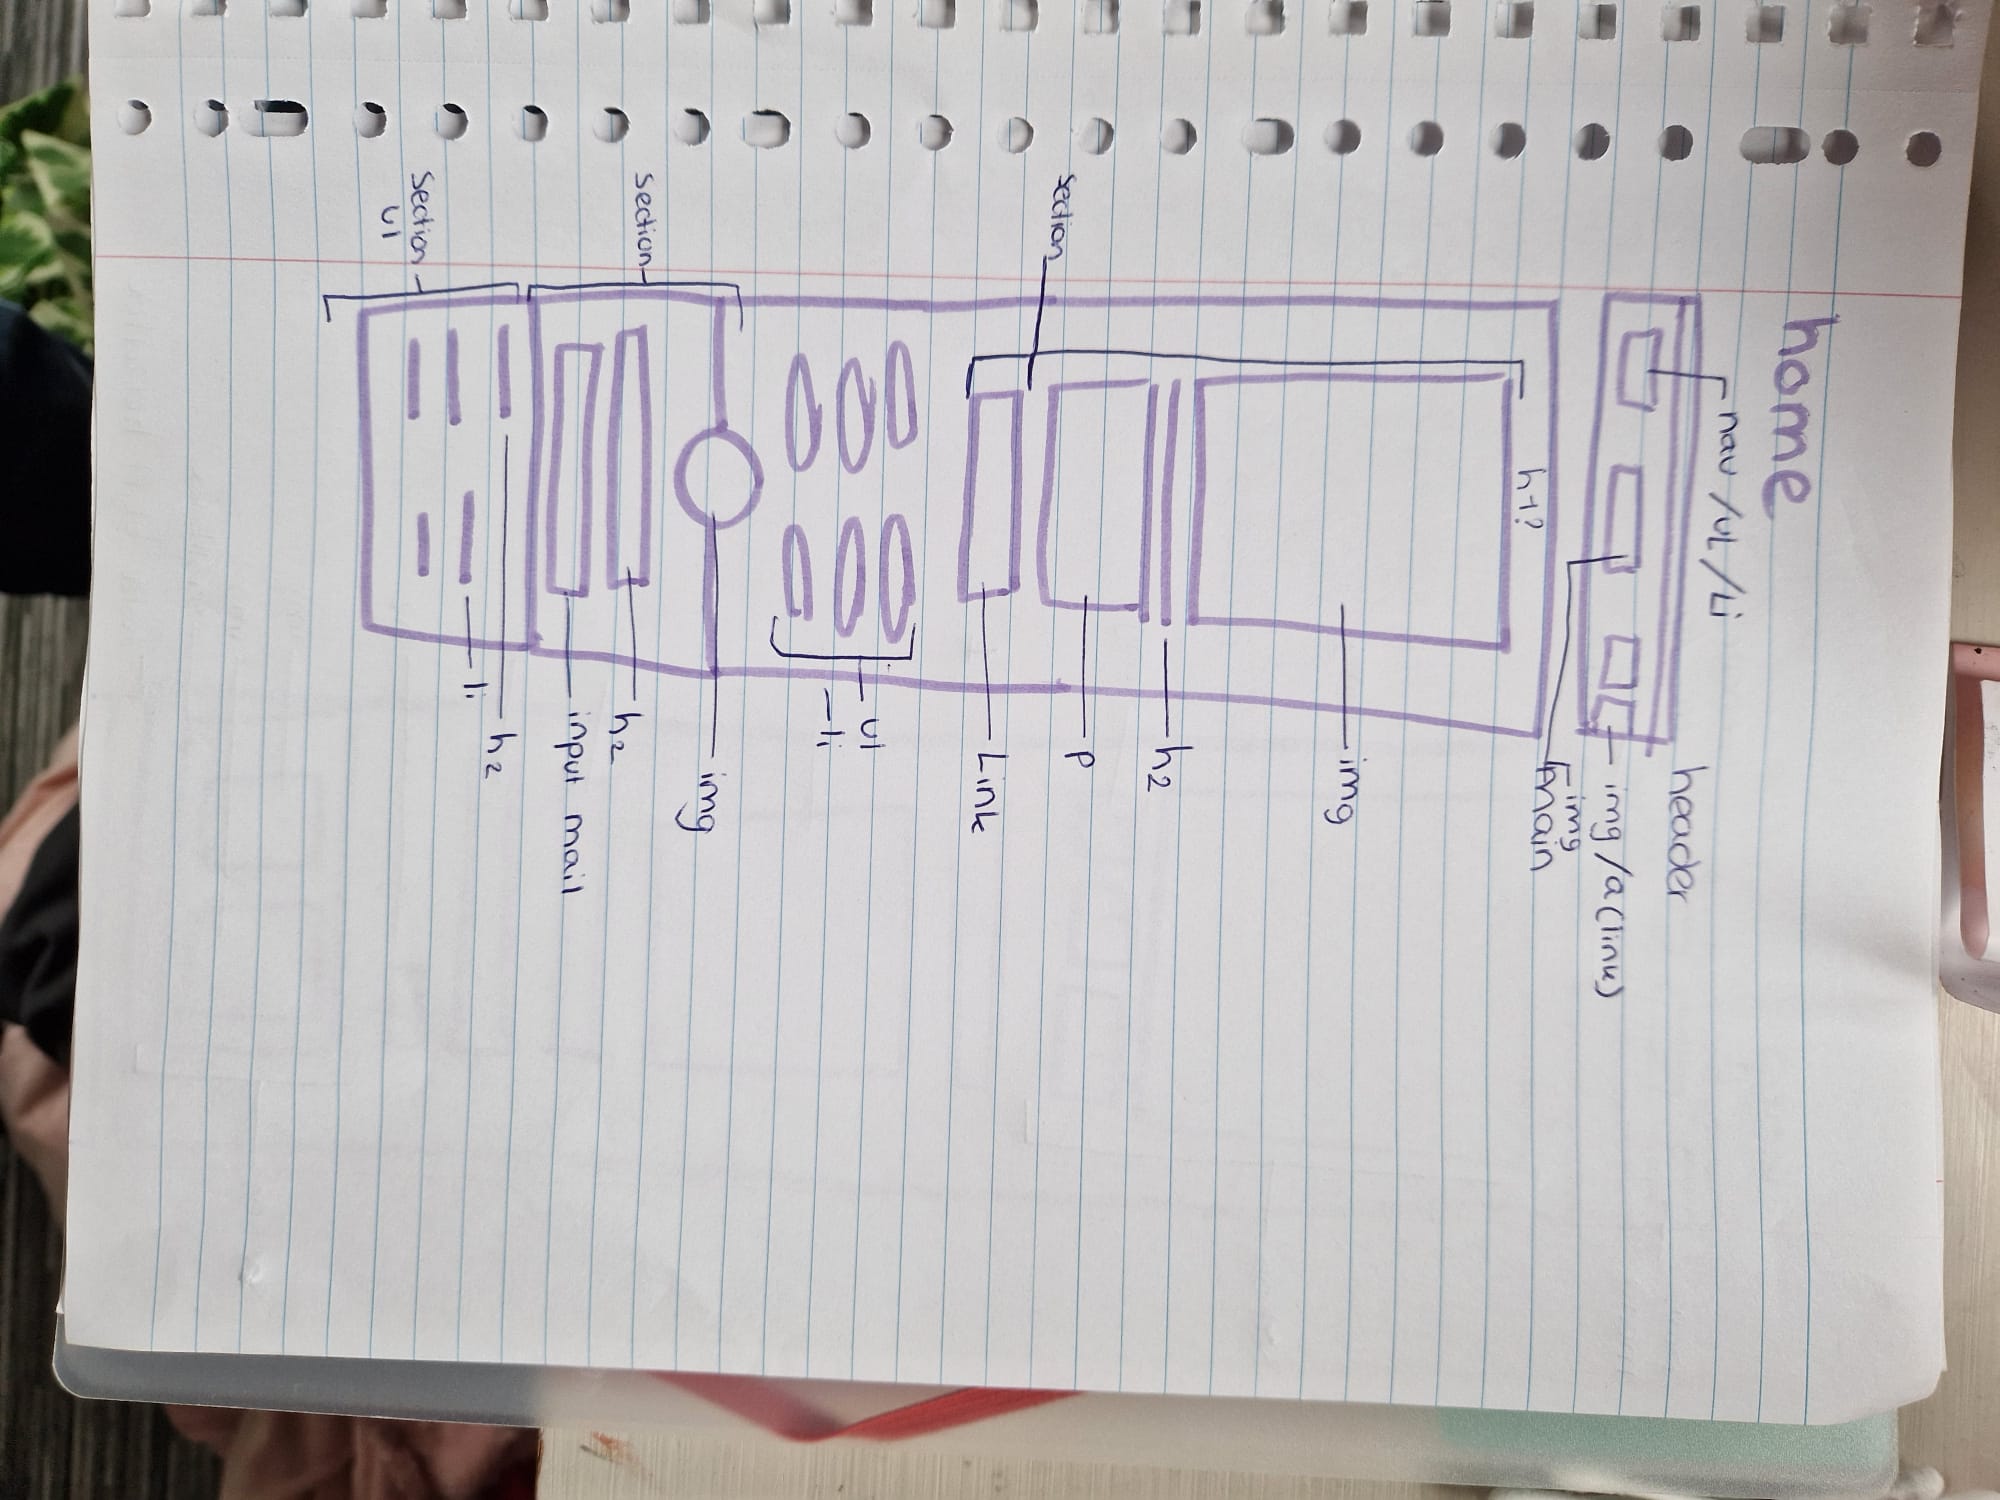 home
nav/ul/li
header
img/a(link)
img
main
h1?
img
h2
section
p
Link
ul
-li
img
section
h2
input mail
h2
section
ul
li